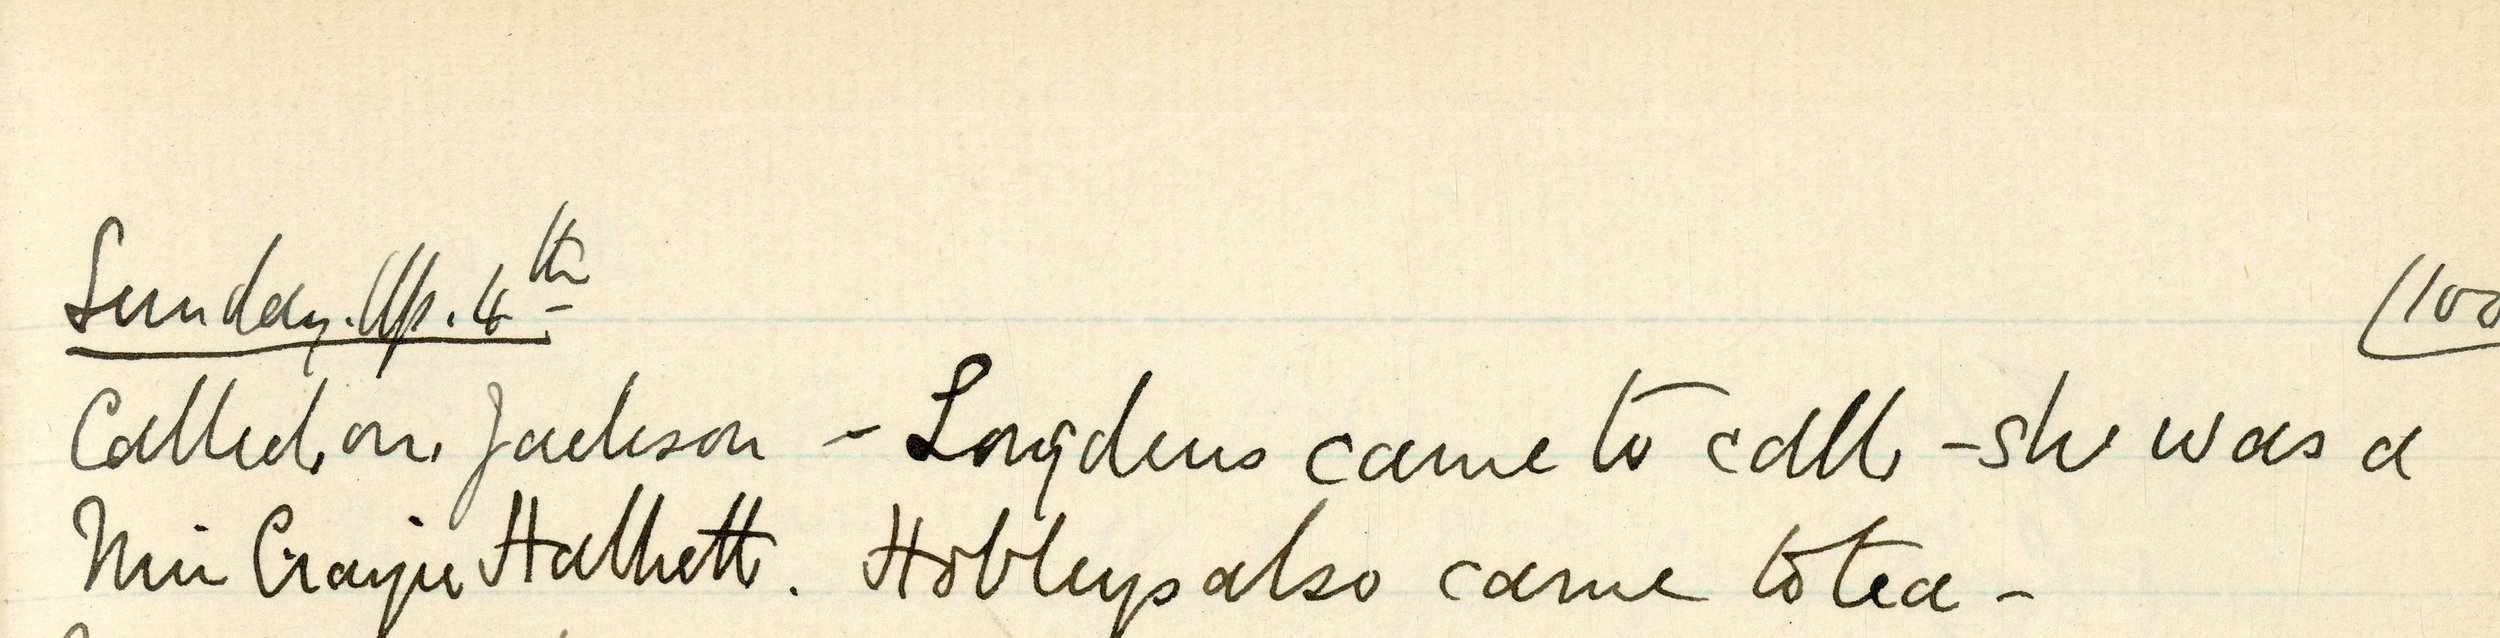 Sunday. Ap. 4th
(100
Called on Jackson - Longdens came to call - she was a
Miss Craigie Halkett. Hobleys also came to tea -